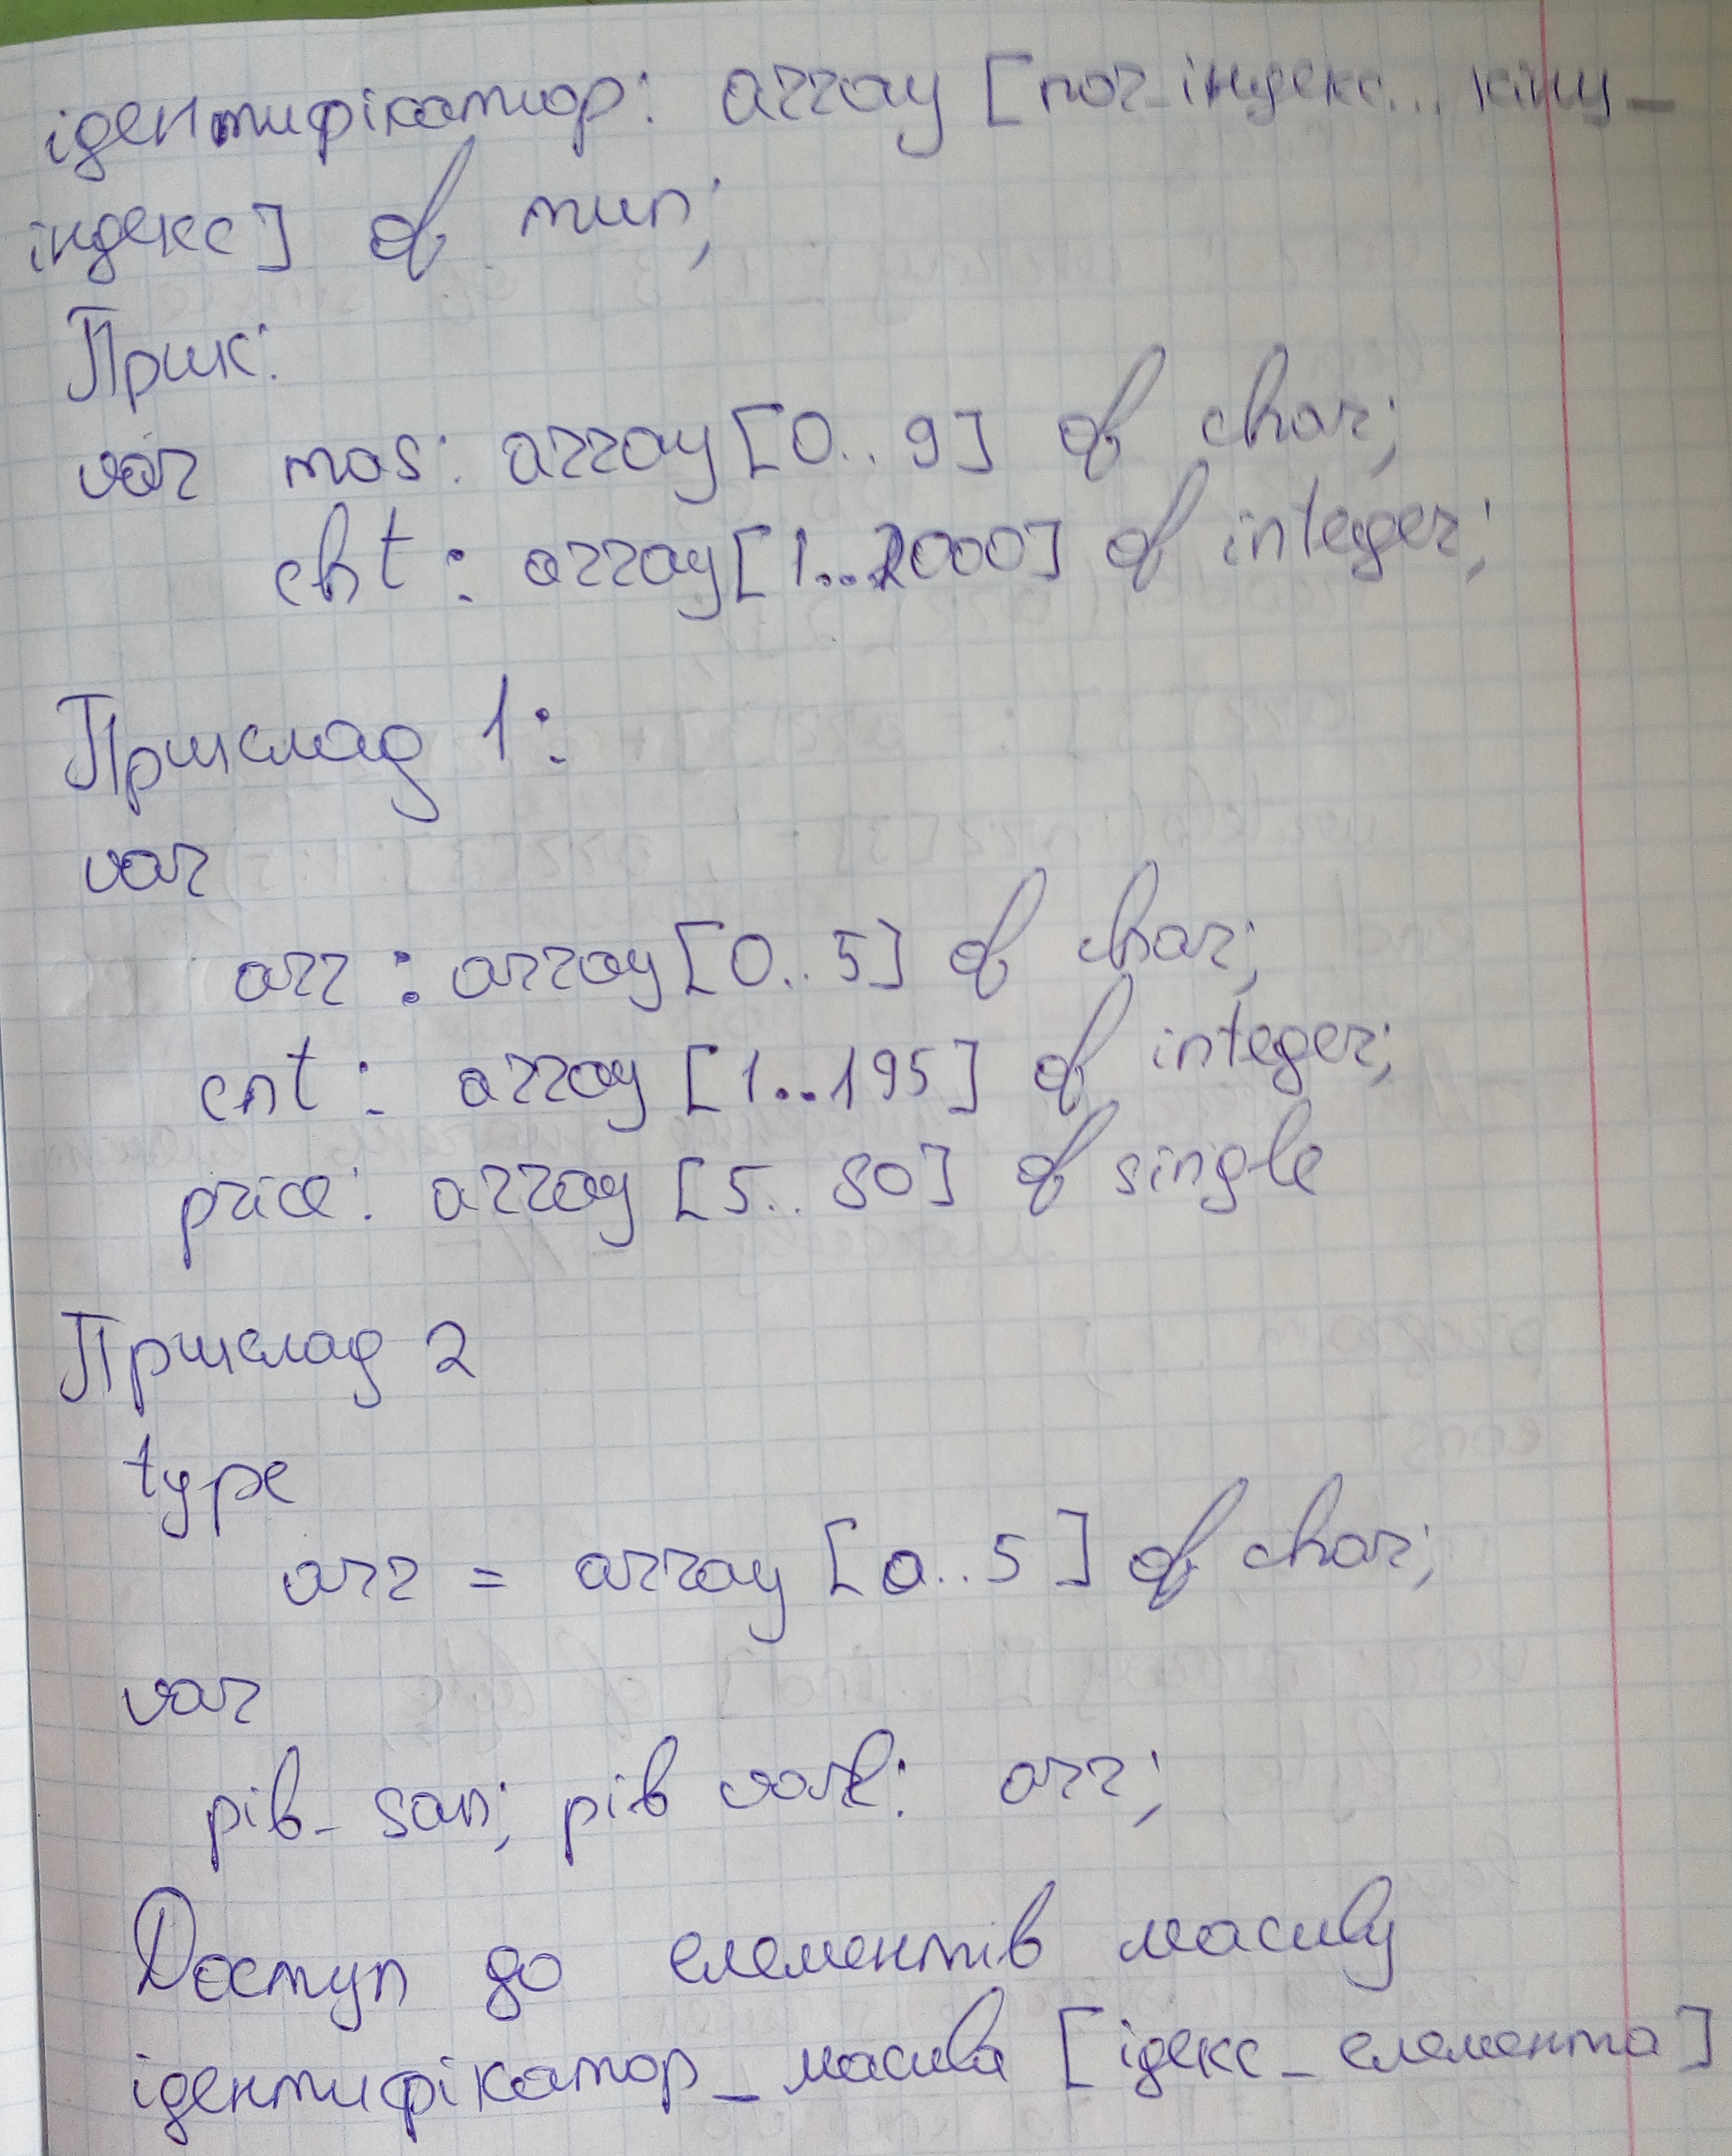 ідентифікатор: array [поч_індекс... кінц_
індекс] of тип;
Прик:
var mas: array[0..9] of char;
cht: array[1..2000] of integer;
Приклад 1:
var
arr: array[0..5] of char;
cnt: array [1..195] of integer;
price: array [5..80] of single
Приклад 2
type
arr = array [0..5] of char;
var
рів_ san; рів vark: arr;
Доступ до елементів масиву
ідентифікатор_масива [ідекс_елемента]